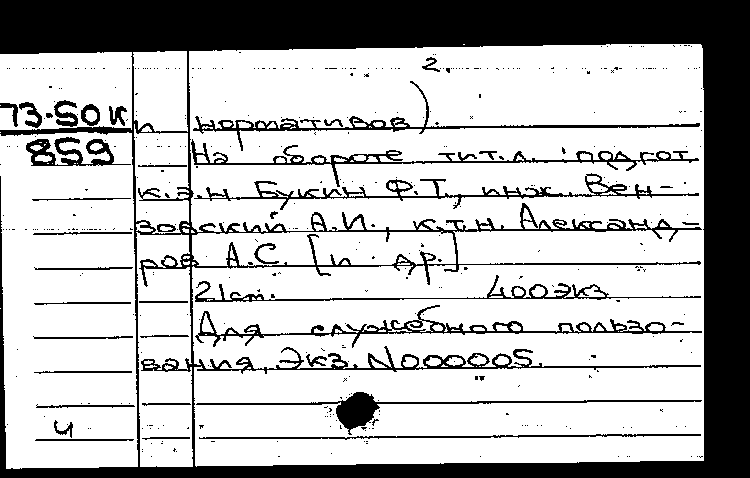 2.
73-50к
859
и нормативов).
На обороте тит.л.: подгот.
к.э.н. Букин Ф.Т., инж. Вен-
зовский А.И., к.т.н. Александ-
ров А.С. [и др.].
21см. 400экз.
Для служебного пользо-
вания, Экз. N000005.
ч